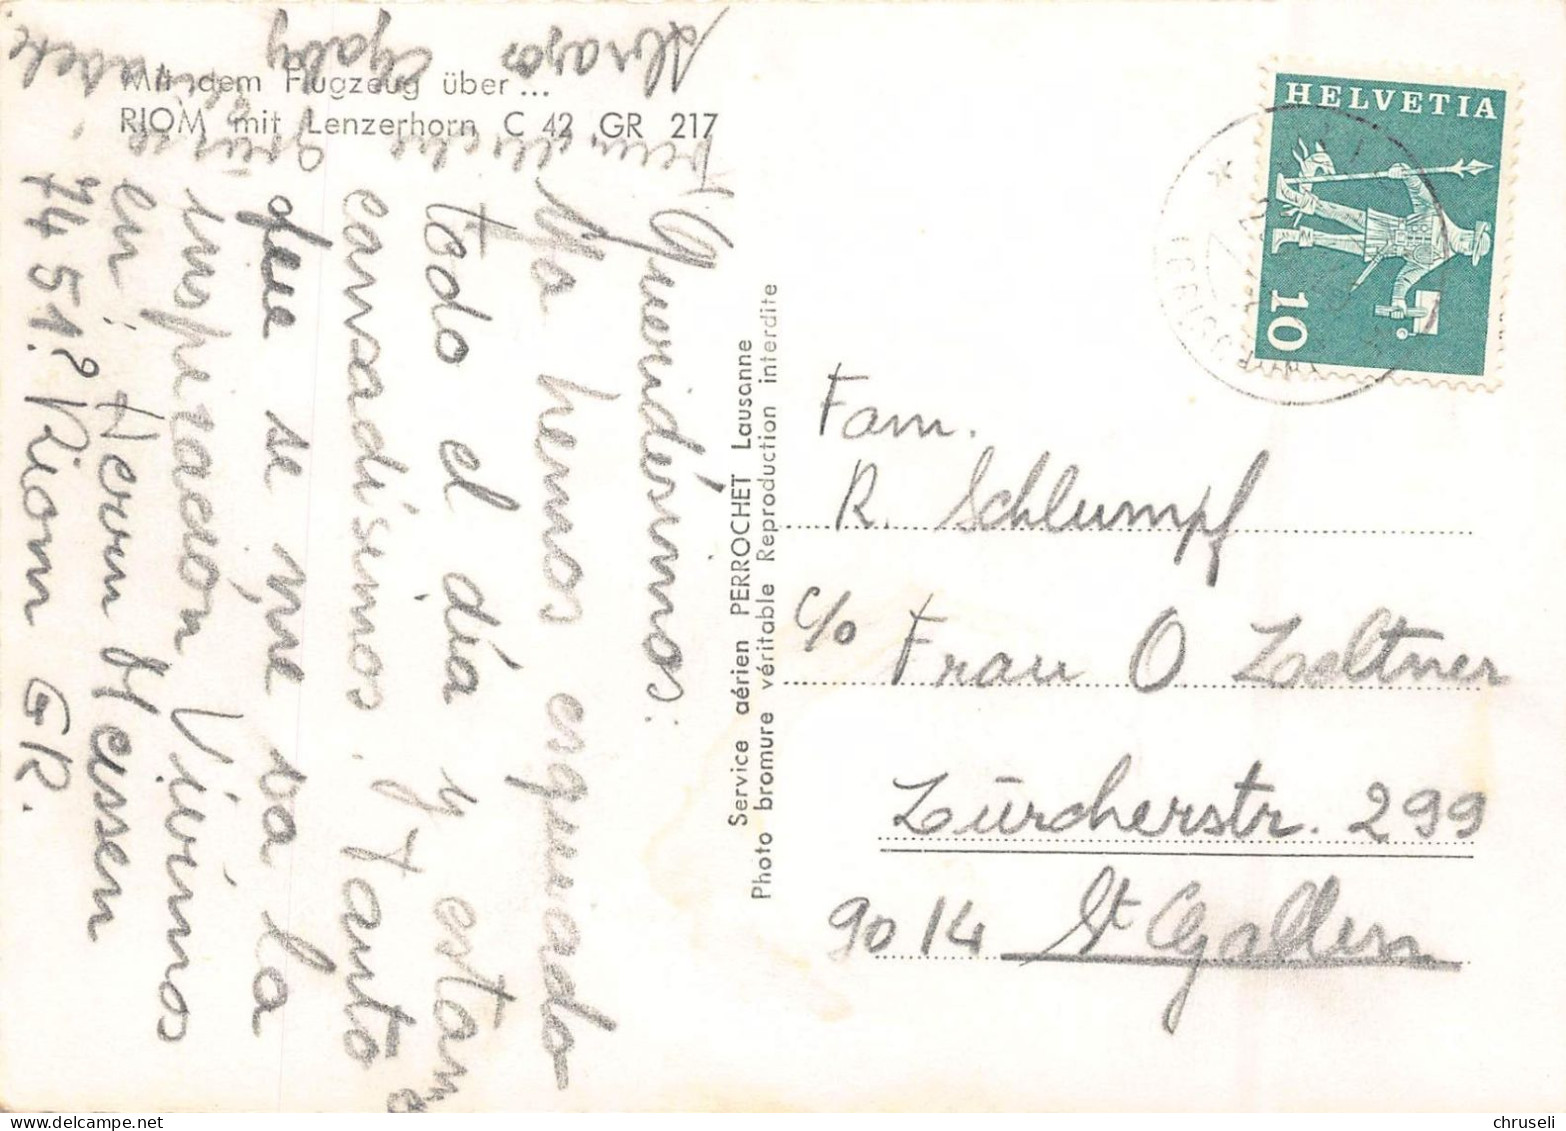 Mit dem Flugzeug über...
RIOM mit Lenzerhorn C 42 GR 217
Queridísimos:
Ya hemos esquiado
todo el día y estamos
cansadísimos. Y tanto
que se me va la
inspiración Vivimos
en: Herrn Hessen
7451? Riom GR.
Abrazos
Gaby
Service aérien PERROCHET Lausanne
Photo bromure véritable Reproduction interdite
HELVETIA
10
Fam.
R. Schlumpf
c/o Frau O Zeltner
Zürcherstr. 299
9014 St Gallen
© chruseli